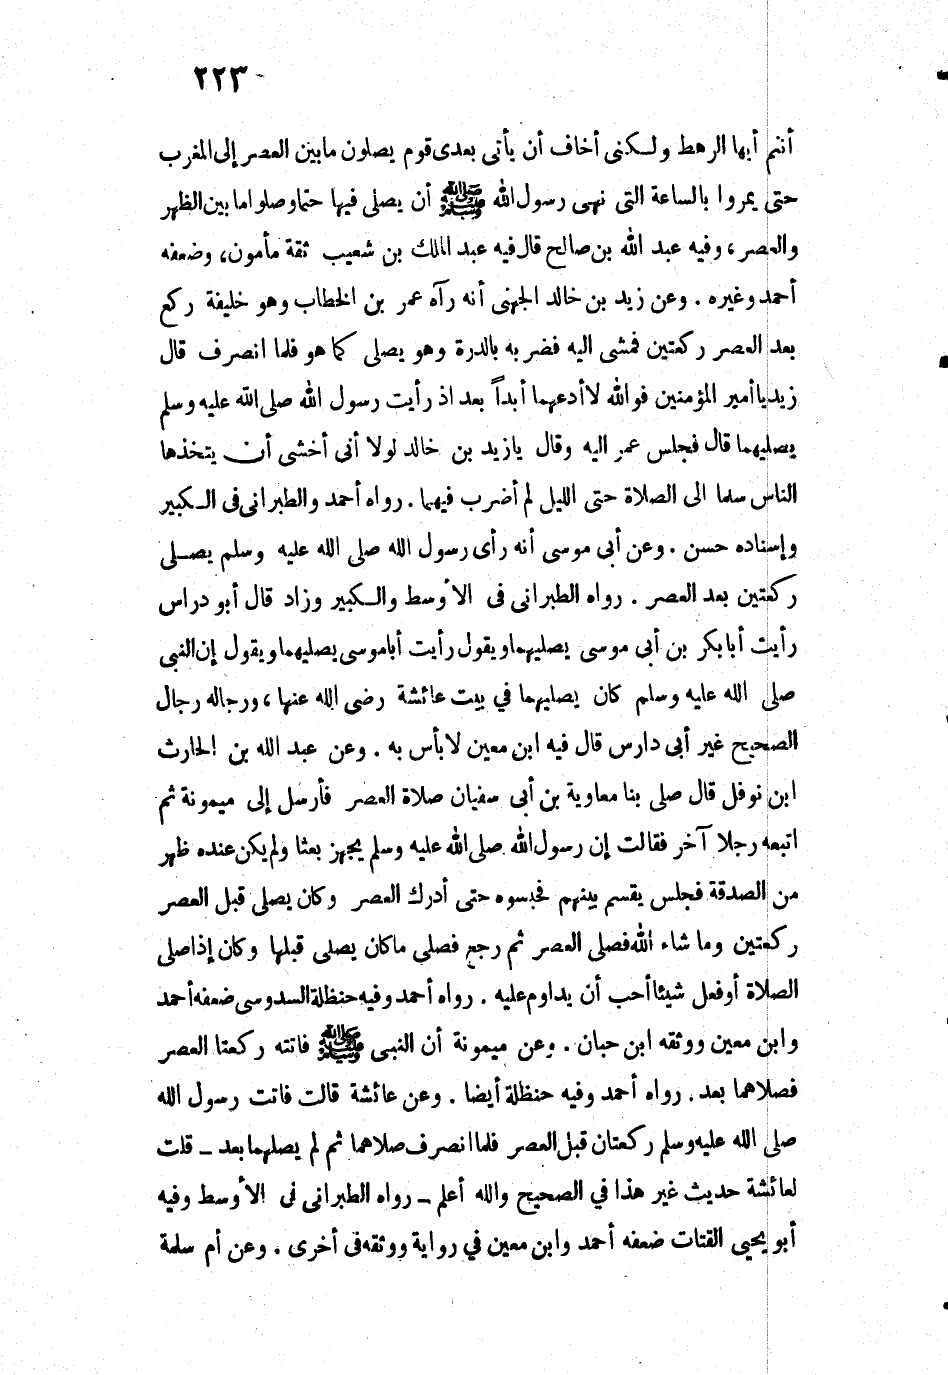 ٢٢٣
أنتم أيها الرهط ولكنى أخاف أن يأتى بعدى قوم يصلون مابين العصر إلى المغرب
حتى يمروا بالساعة التى نهى رسول الله ﷺ أن يصلى فيها حتما وصلوا ما بين الظهر
والعصر، وفيه عبد الله بن صالح قال فيه عبد الملك بن شعيب ثقة مأمون، وضعفه
أحمد وغيره . وعن زيد بن خالد الجهنى أنه رآه عمر بن الخطاب وهو خليفة ركع
بعد العصر ركعتين فمشى اليه فضربه بالدرة وهو يصلى كما هو فلما انصرف قال
زيد يا أمير المؤمنين فوالله لا أدعهما أبداً بعد اذ رأيت رسول الله صلى الله عليه وسلم
يصليهما قال فجلس عمر اليه وقال يازيد بن خالد لولا أنى أخشى أن يتخذها
الناس سلما الى الصلاة حتى الليل لم أضرب فيهما . رواه أحمد والطبرانى فى الكبير
وإسناده حسن . وعن أبي موسى أنه رأى رسول الله صلى الله عليه وسلم يصلى
ركعتين بعد العصر . رواه الطبرانى فى الأوسط والكبير وزاد قال أبو دراس
رأيت أبابكر بن أبى موسى يصليهما ويقول رأيت أباموسى يصليهما ويقول إن النبى
صلى الله عليه وسلم كان يصليهما في بيت عائشة رضى الله عنها، ورجاله رجال
الصحيح غير أبى دارس قال فيه ابن معين لابأس به . وعن عبد الله بن الحارث
ابن نوفل قال صلى بنا معاوية بن أبى سفيان صلاة العصر فأرسل إلى ميمونة ثم
اتبعه رجلا آخر فقالت إن رسول الله صلى الله عليه وسلم يجهز بعثا ولم يكن عنده ظهر
من الصدقة فجلس يقسم بينهم فحبسوه حتى أدرك العصر وكان يصلى قبل العصر
ركعتين وما شاء الله فصلى العصر ثم رجع فصلى ماكان يصلى قبلها وكان إذاصلى
الصلاة أوفعل شيئا أحب أن يداوم عليه . رواه أحمد وفيه حنظلة السدوسى ضعفه أحمد
وابن معين ووثقه ابن حبان . وعن ميمونة أن النبى ﷺ فاتته ركعتا العصر
فصلاهما بعد . رواه أحمد وفيه حنظلة أيضا . وعن عائشة قالت فاتت رسول الله
صلى الله عليه وسلم ركعتان قبل العصر فلما انصرف صلاهما ثم لم يصلهما بعد ـ قلت
لعائشة حديث غير هذا في الصحيح والله أعلم ـ رواه الطبرانى فى الأوسط وفيه
أبو يحيى القتات ضعفه أحمد وابن معين في رواية ووثقه فى أخرى . وعن أم سلمة